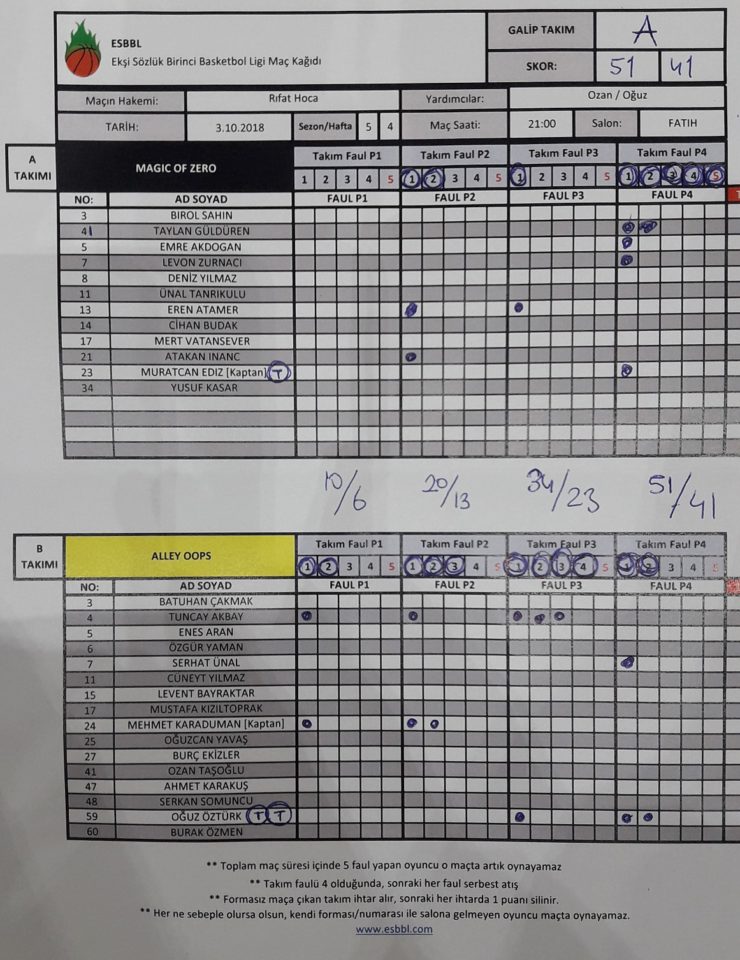 ESBBL
Ekşi Sözlük Birinci Basketbol Ligi Maç Kağıdı
GALİP TAKIM A
SKOR: 51 41
Maçın Hakemi: Rıfat Hoca Yardımcılar: Ozan / Oğuz
TARİH: 3.10.2018 Sezon/Hafta 5 4 Maç Saati: 21:00 Salon: FATIH
A TAKIMI MAGIC OF ZERO Takım Faul P1 Takım Faul P2 Takım Faul P3 Takım Faul P4
1 2 3 4 5 1 2 3 4 5 1 2 3 4 5 1 2 3 4 5
NO: AD SOYAD FAUL P1 FAUL P2 FAUL P3 FAUL P4
3 BIROL SAHIN
41 TAYLAN GÜLDÜREN
5 EMRE AKDOGAN
7 LEVON ZURNACI
8 DENİZ YILMAZ
11 ÜNAL TANRIKULU
13 EREN ATAMER
14 CİHAN BUDAK
17 MERT VATANSEVER
21 ATAKAN INANC
23 MURATCAN EDIZ [Kaptan] T
34 YUSUF KASAR
10/6 20/13 34/23 51/41
B TAKIMI ALLEY OOPS Takım Faul P1 Takım Faul P2 Takım Faul P3 Takım Faul P4
1 2 3 4 5 1 2 3 4 5 1 2 3 4 5 1 2 3 4 5
NO: AD SOYAD FAUL P1 FAUL P2 FAUL P3 FAUL P4
3 BATUHAN ÇAKMAK
4 TUNCAY AKBAY
5 ENES ARAN
6 ÖZGÜR YAMAN
7 SERHAT ÜNAL
11 CÜNEYT YILMAZ
15 LEVENT BAYRAKTAR
17 MUSTAFA KIZILTOPRAK
24 MEHMET KARADUMAN [Kaptan]
25 OĞUZCAN YAVAŞ
27 BURÇ EKİZLER
41 OZAN TAŞOĞLU
47 AHMET KARAKUŞ
48 SERKAN SOMUNCU
59 OĞUZ ÖZTÜRK T T
60 BURAK ÖZMEN
** Toplam maç süresi içinde 5 faul yapan oyuncu o maçta artık oynayamaz
** Takım faulü 4 olduğunda, sonraki her faul serbest atış
** Formasız maça çıkan takım ihtar alır, sonraki her ihtarda 1 puanı silinir.
** Her ne sebeple olursa olsun, kendi forması/numarası ile salona gelmeyen oyuncu maçta oynayamaz.
www.esbbl.com